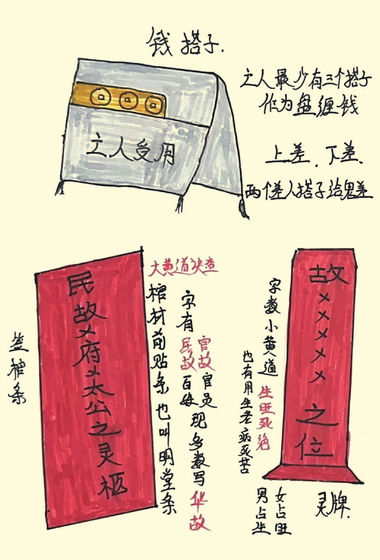 钱搭子.
亡人受用
亡人最少有三个搭子
作为盘缠钱
上差、下差.
两个差人搭子给鬼差
大黄道
民故㐅府㐅太公之灵柩
棺材前贴条也叫明堂条
字有
官故官员
民故百姓
现多数写华故
故㐅㐅㐅㐅㐅之位
字数小黄道生旺死绝
也有用生老病死苦
女占旺
男占生
灵牌